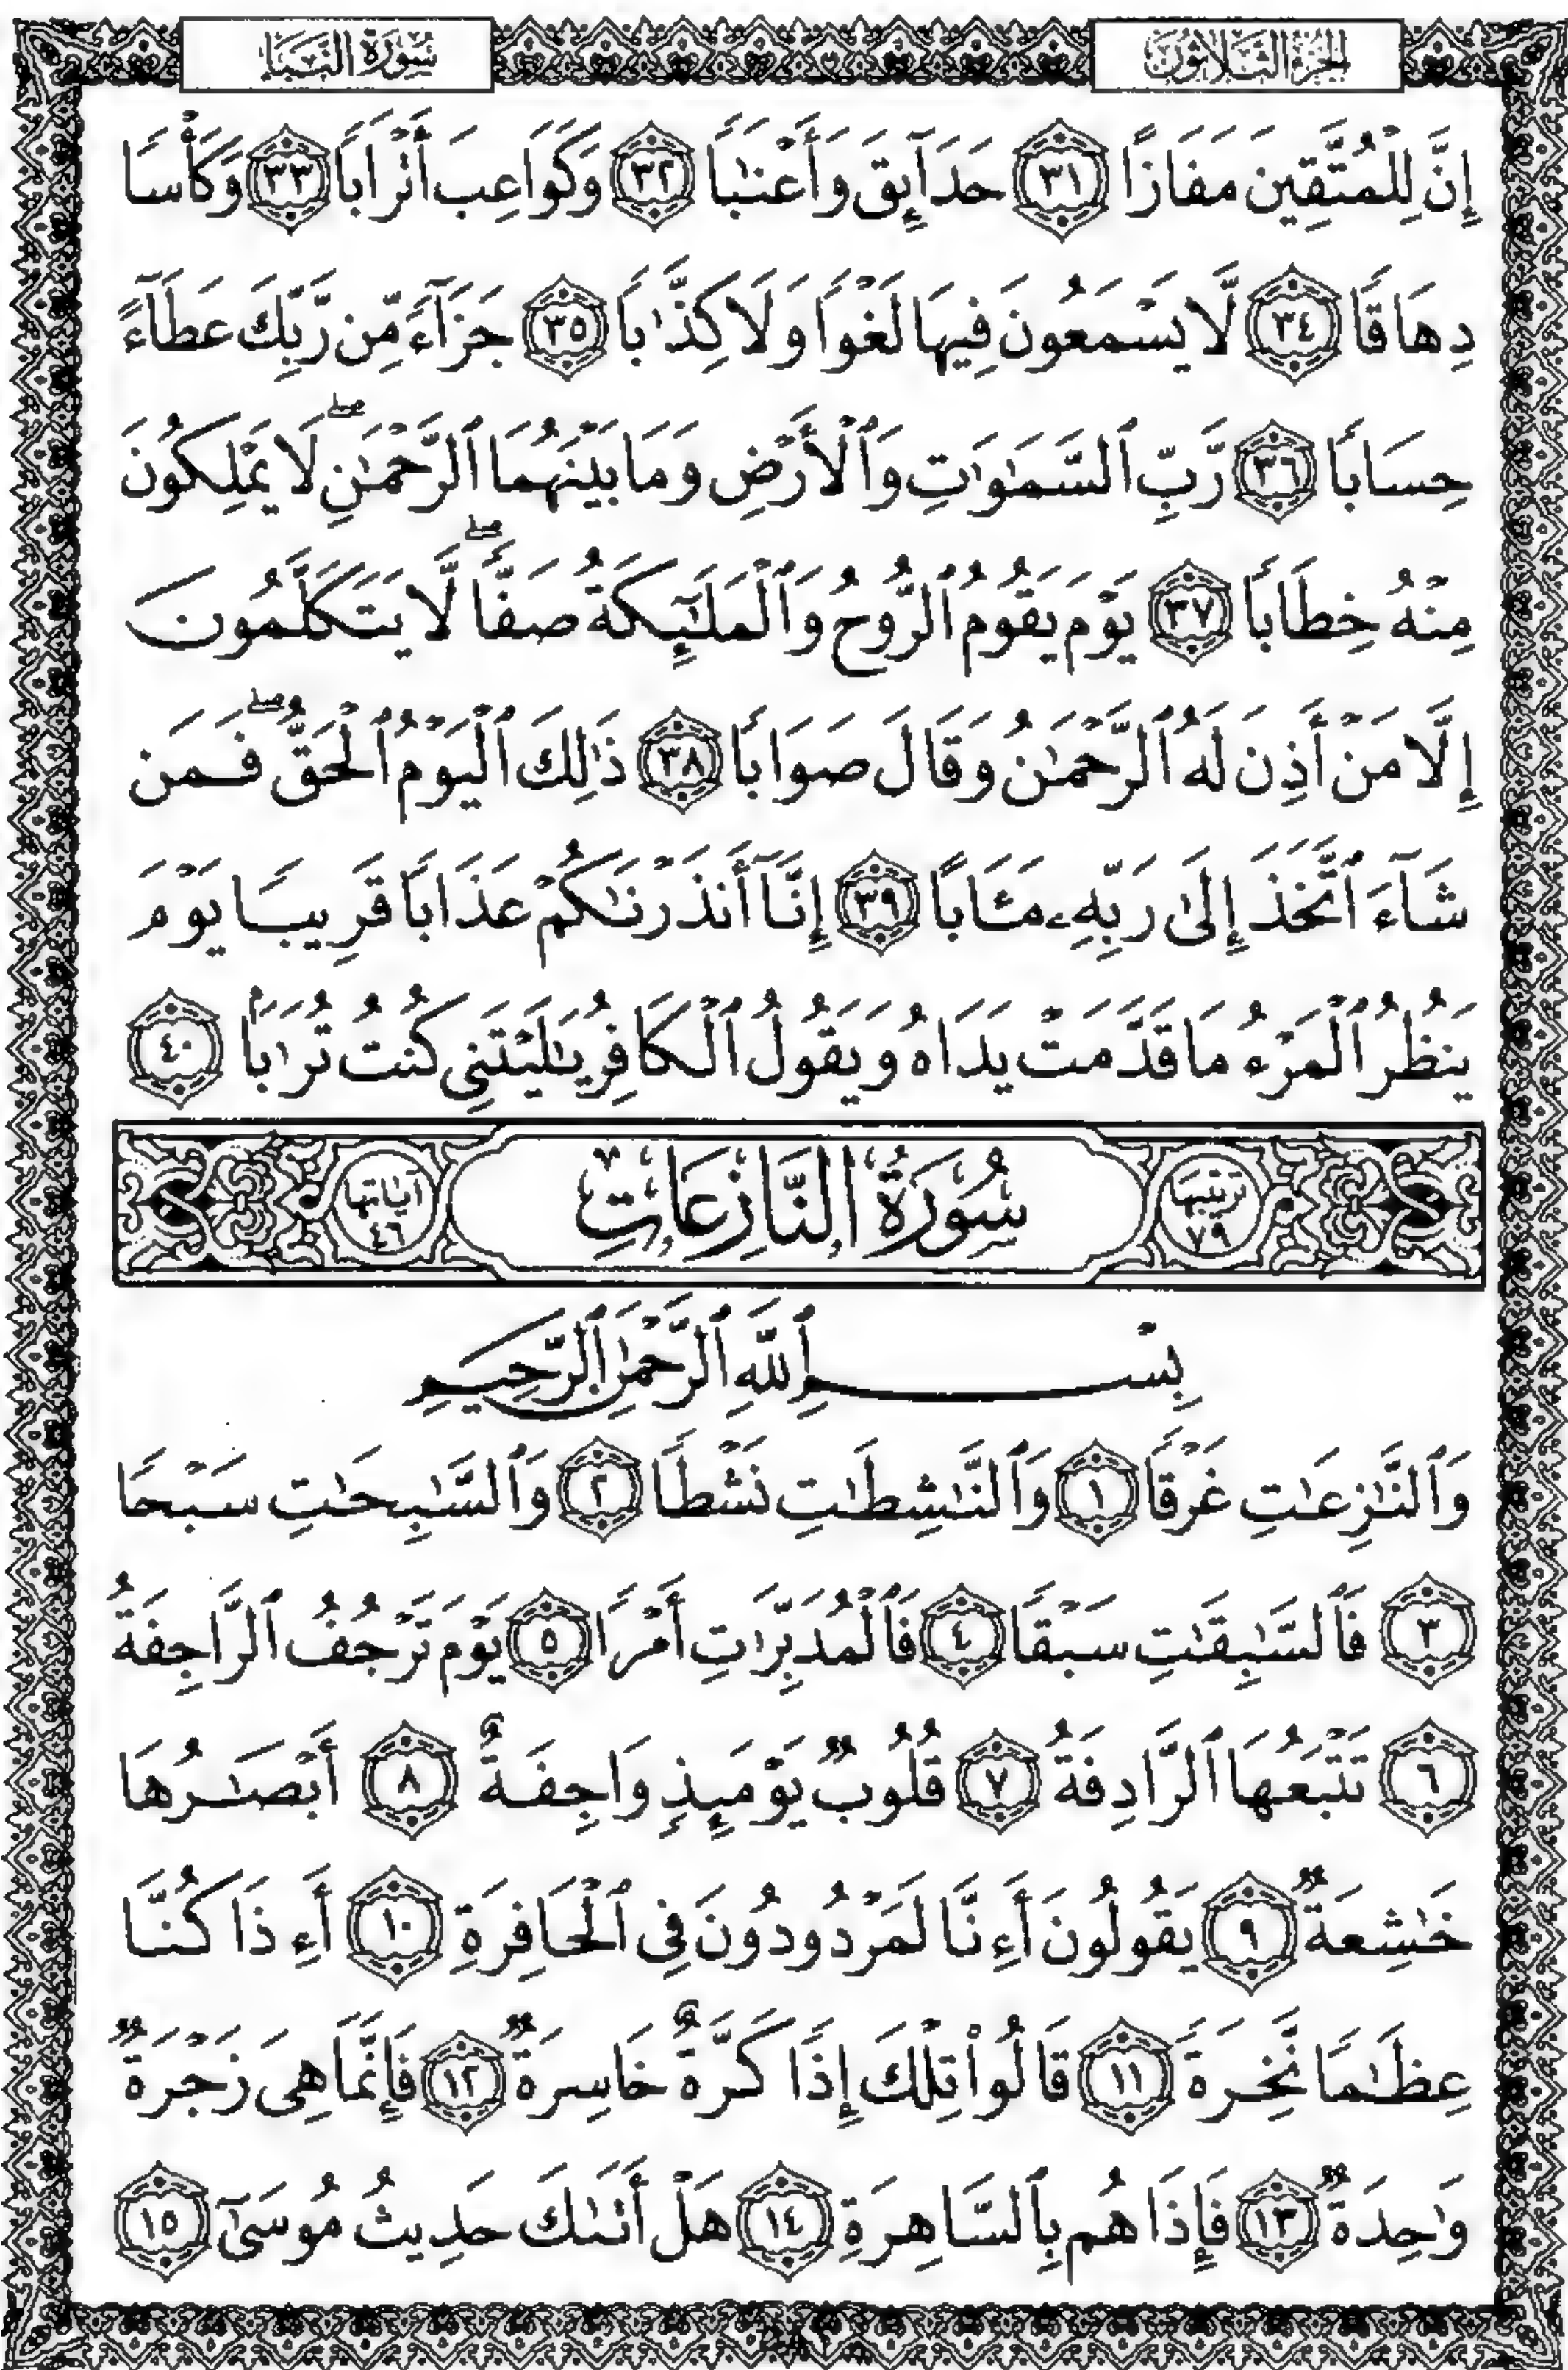 الجزء الثلاثون
سورة النبإ
إِنَّ لِلْمُتَّقِينَ مَفَازًا ٣١ حَدَآئِقَ وَأَعْنَٰبًا ٣٢ وَكَوَاعِبَ أَتْرَابًا ٣٣ وَكَأْسًا
دِهَاقًا ٣٤ لَّا يَسْمَعُونَ فِيهَا لَغْوًا وَلَا كِذَّٰبًا ٣٥ جَزَآءً مِّن رَّبِّكَ عَطَآءً
حِسَابًا ٣٦ رَّبِّ ٱلسَّمَٰوَٰتِ وَٱلْأَرْضِ وَمَا بَيْنَهُمَا ٱلرَّحْمَٰنِ ۖ لَا يَمْلِكُونَ
مِنْهُ خِطَابًا ٣٧ يَوْمَ يَقُومُ ٱلرُّوحُ وَٱلْمَلَٰٓئِكَةُ صَفًّا ۖ لَّا يَتَكَلَّمُونَ
إِلَّا مَنْ أَذِنَ لَهُ ٱلرَّحْمَٰنُ وَقَالَ صَوَابًا ٣٨ ذَٰلِكَ ٱلْيَوْمُ ٱلْحَقُّ ۖ فَمَن
شَآءَ ٱتَّخَذَ إِلَىٰ رَبِّهِۦ مَـَٔابًا ٣٩ إِنَّآ أَنذَرْنَٰكُمْ عَذَابًا قَرِيبًا يَوْمَ
يَنظُرُ ٱلْمَرْءُ مَا قَدَّمَتْ يَدَاهُ وَيَقُولُ ٱلْكَافِرُ يَٰلَيْتَنِى كُنتُ تُرَٰبًۢا ٤٠
ترتيبها ٧٩ سُورَةُ النَّازِعَاتِ آياتها ٤٦
بِسْمِ ٱللَّهِ ٱلرَّحْمَٰنِ ٱلرَّحِيمِ
وَٱلنَّٰزِعَٰتِ غَرْقًا ١ وَٱلنَّٰشِطَٰتِ نَشْطًا ٢ وَٱلسَّٰبِحَٰتِ سَبْحًا
٣ فَٱلسَّٰبِقَٰتِ سَبْقًا ٤ فَٱلْمُدَبِّرَٰتِ أَمْرًا ٥ يَوْمَ تَرْجُفُ ٱلرَّاجِفَةُ
٦ تَتْبَعُهَا ٱلرَّادِفَةُ ٧ قُلُوبٌ يَوْمَئِذٍ وَاجِفَةٌ ٨ أَبْصَٰرُهَا
خَٰشِعَةٌ ٩ يَقُولُونَ أَءِنَّا لَمَرْدُودُونَ فِى ٱلْحَافِرَةِ ١٠ أَءِذَا كُنَّا
عِظَٰمًا نَّخِرَةً ١١ قَالُوا۟ تِلْكَ إِذًا كَرَّةٌ خَاسِرَةٌ ١٢ فَإِنَّمَا هِىَ زَجْرَةٌ
وَٰحِدَةٌ ١٣ فَإِذَا هُم بِٱلسَّاهِرَةِ ١٤ هَلْ أَتَىٰكَ حَدِيثُ مُوسَىٰٓ ١٥